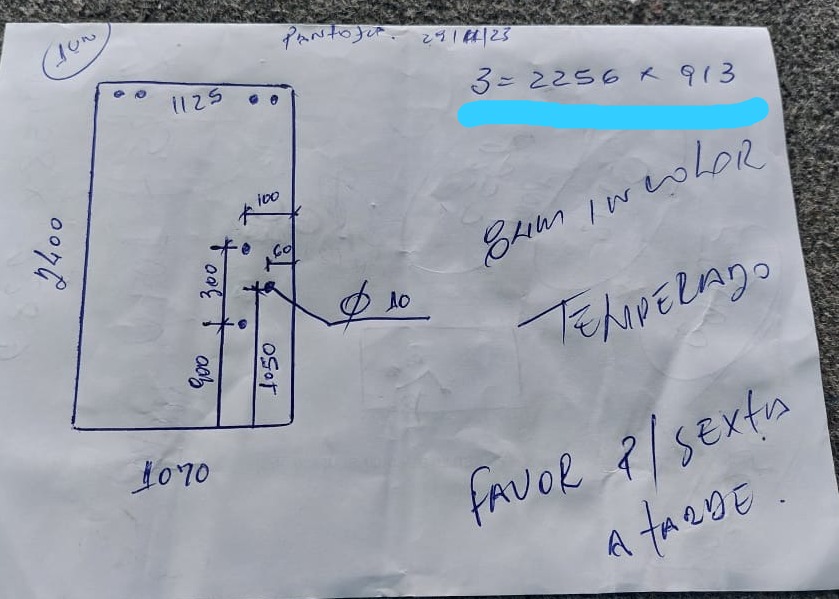 1 UN
PANTOJA. 29/11/23
3 = 2256 x 913
1125
8MM INCOLOR
100
2400
60
300
TEMPERADO
Ø 10
900
1050
1070
FAVOR P/ SEXTA
A TARDE.